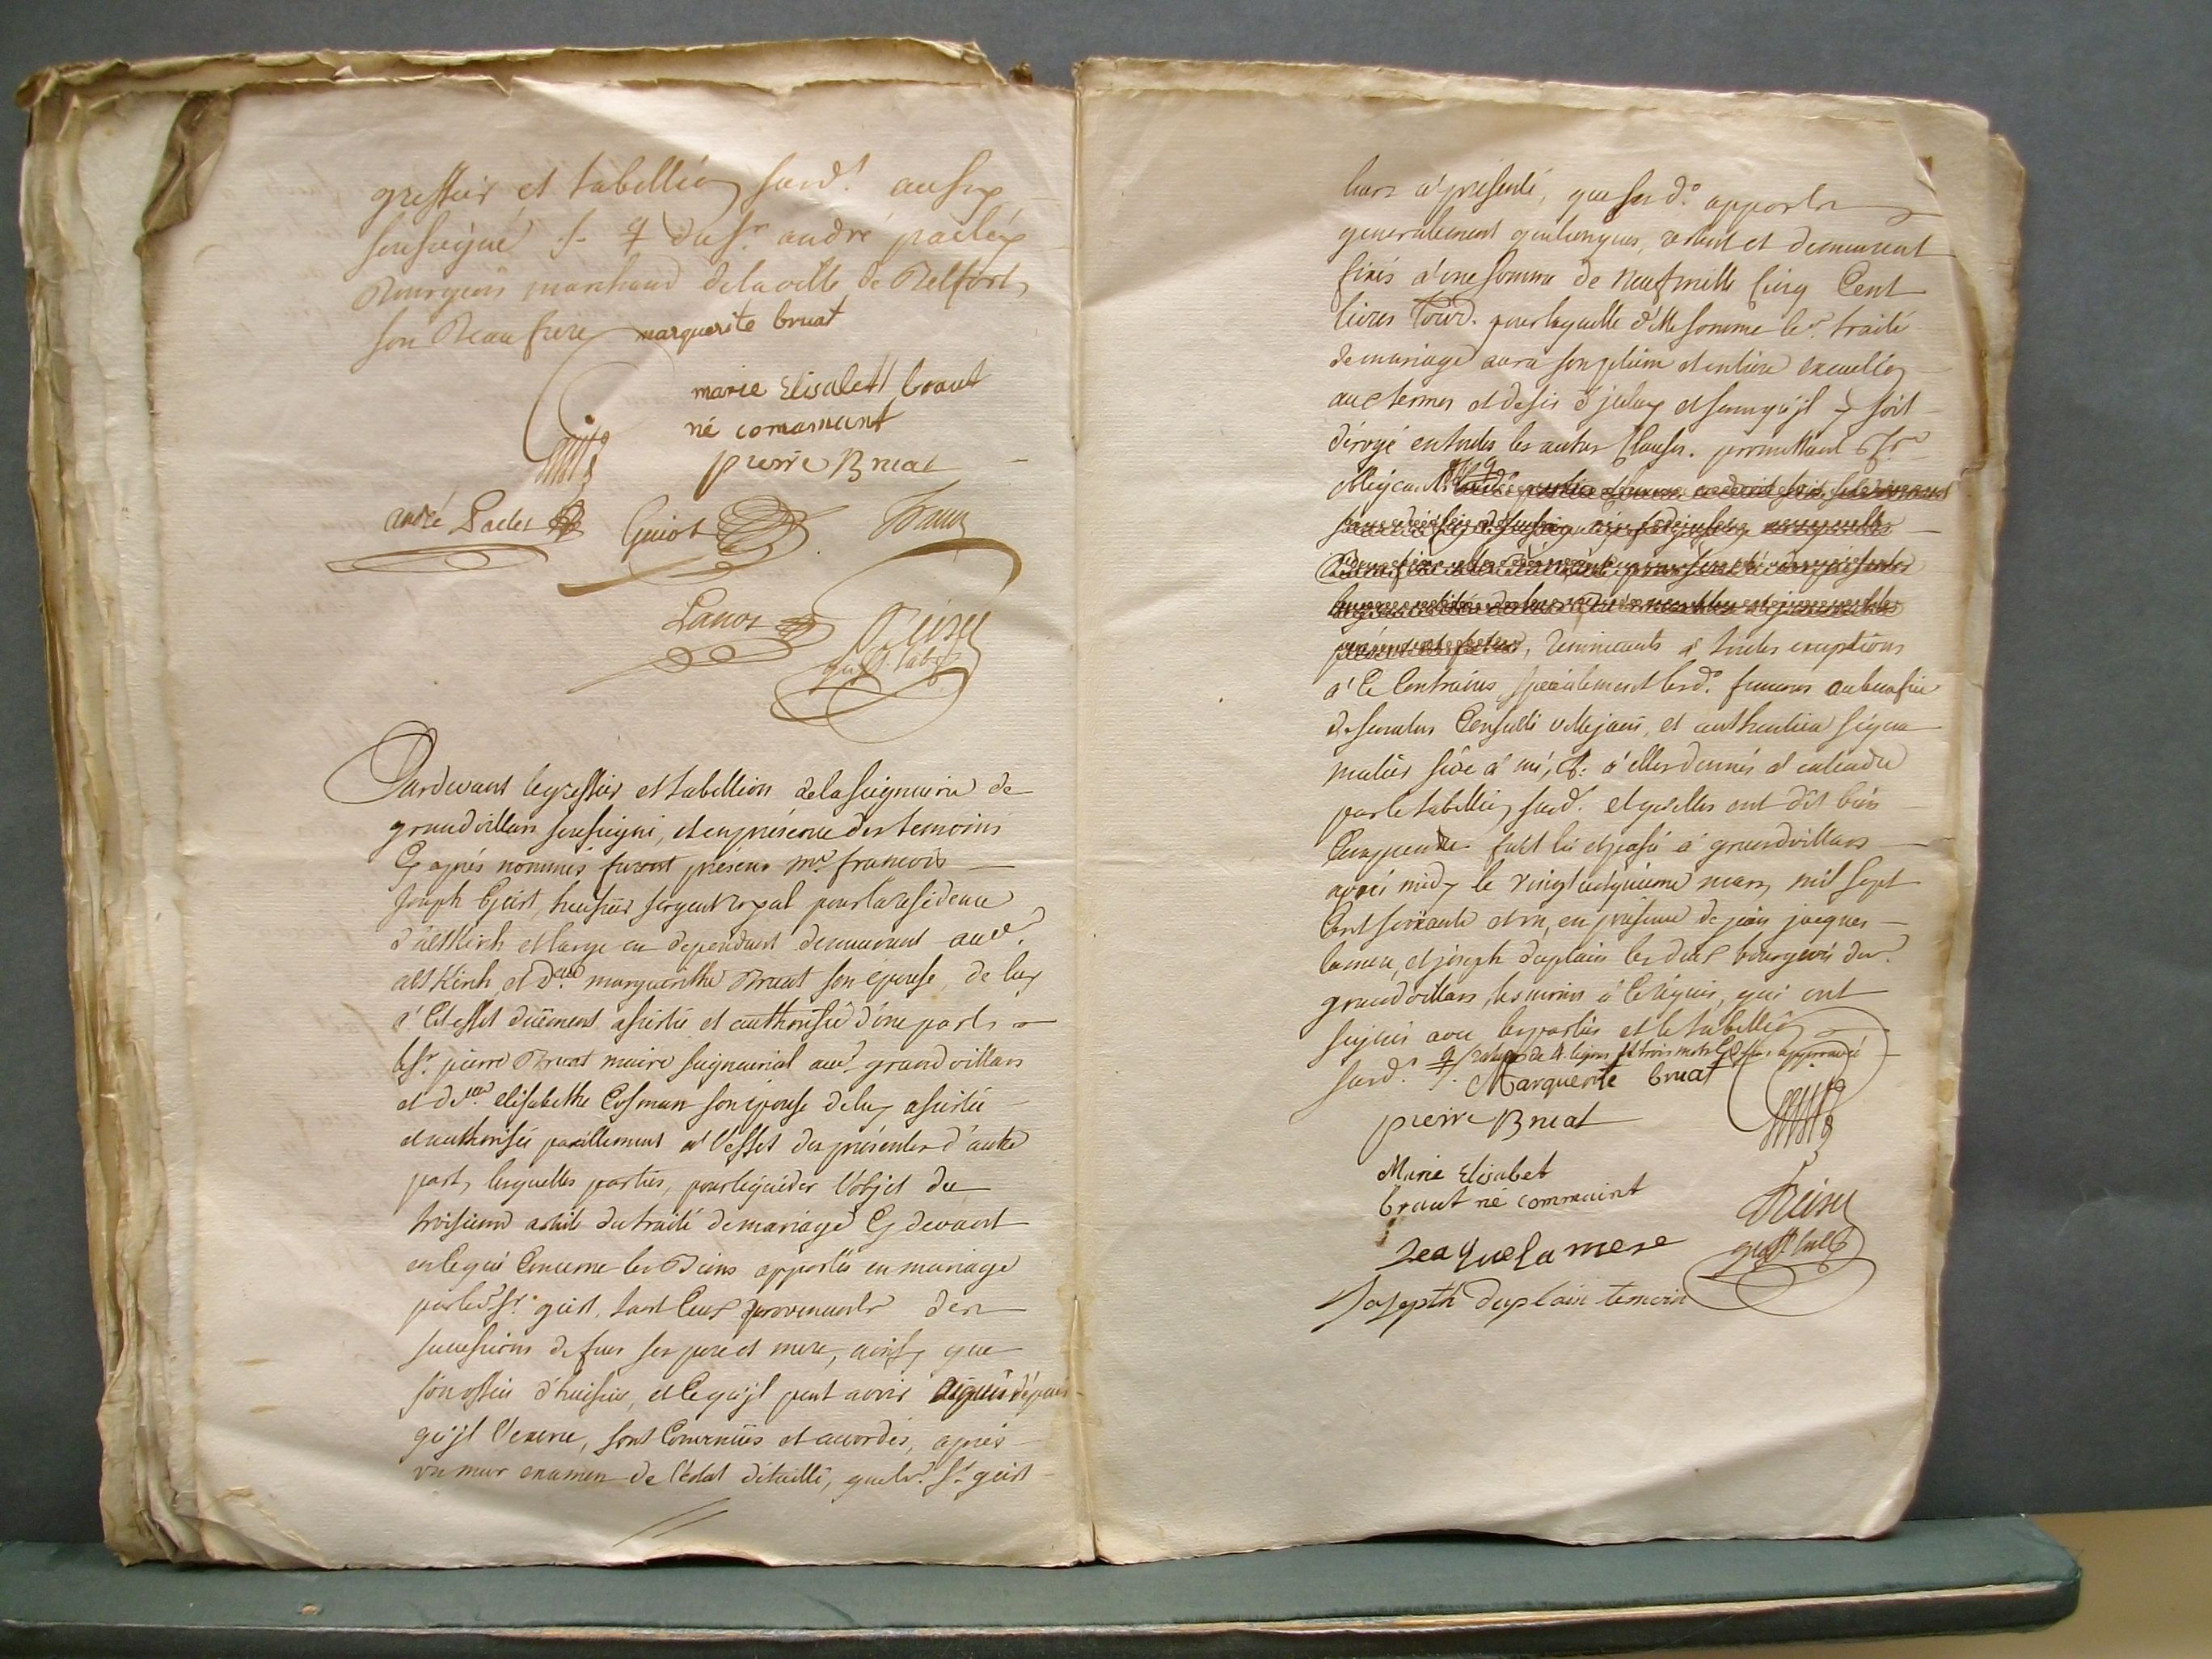 greffier et tabellion susd.t aussy
soussigné ./. du Sr. andré paclét
Bourgeois marchand de la ville de Belfort,
son Beau frere marguerite bruat
marie Elisabett braut
né comamunt
pierre Bruat
andré Paclet Guiot
Lanor Reiset
greff. tab.
Pardevant le greffier et tabellion de la seigneurie de
grandvillars soussigné, et en présence des temoins
Cy aprés nommés furent présens mre. francois
Joseph Geist, huissier sergent royal pour la residence
d'altkirch et large en dependant demeurant aud.
altkirch, et De. marguerithe Bruat son épouse, de luy
a' Cet effet düement assistée et authorisée d'une part,
le Sr. pierre Bruat maire seigneurial aud. grandvillars
et De. elisabethe Cosman son épouse de luy assistée
et authorisée pareillement a' l'effet des présentes d'autre
part, lesquelles parties, pour liquider l'objet du
troisieme article du traité de mariage Cy devant
en ce qui Concerne les Biens apportés en mariage
par led. Sr. geist, tant Ceux provenants des
successions de feus ses pere et mere, ainsy que
son office d'huissier, et ce qu'jl peut avoir acquis depuis
qu'jl l'exerce, sont Convenües et accordés, aprés
un mur examen de l'état détaillé, que led. Sr. geist
leurs a' présenté, que ses d. apports
generalement quelconques, restent et demeurent
fixés a' une somme de Neuf mille Cinq Cent
livres tour. pour laquelle d'itte somme led. traité
de mariage aura son plein et entiere execution
aux termes et desir d'jceluy et sans qu'jl y soit
dérogé en toutes les autres Clauses. promettant &a.
obligeant &a.
renoncants a' toutes exceptions
a' Ce Contraires spécialement lesd. femmes au benefice
du senatus Consulte velleïen, et authentica si qua
mulier fidé a' mé, &: a' elles donnés a' entendre
par le tabellion susd. et qu'elles ont dit bien
Comprendre fait lu et passé a' grandvillars
aprés midy le vingt cinquieme mars mil sept
Cent soixante et un, en présence de jean jacques
lamere, et joseph duplain les deux bourgeois dud.
grandvillars, tesmoins a' Ce requis, qui ont
signés avec les parties et le tabellion
susd. ./. rature de 4. lignes et trois mots Cy dessus approuvé
Marguerite bruat
pierre Bruat
Marie Elisabet
braut né commaint
Reiset
greff tab
Jeaquelamere
Josepth duplain temoin